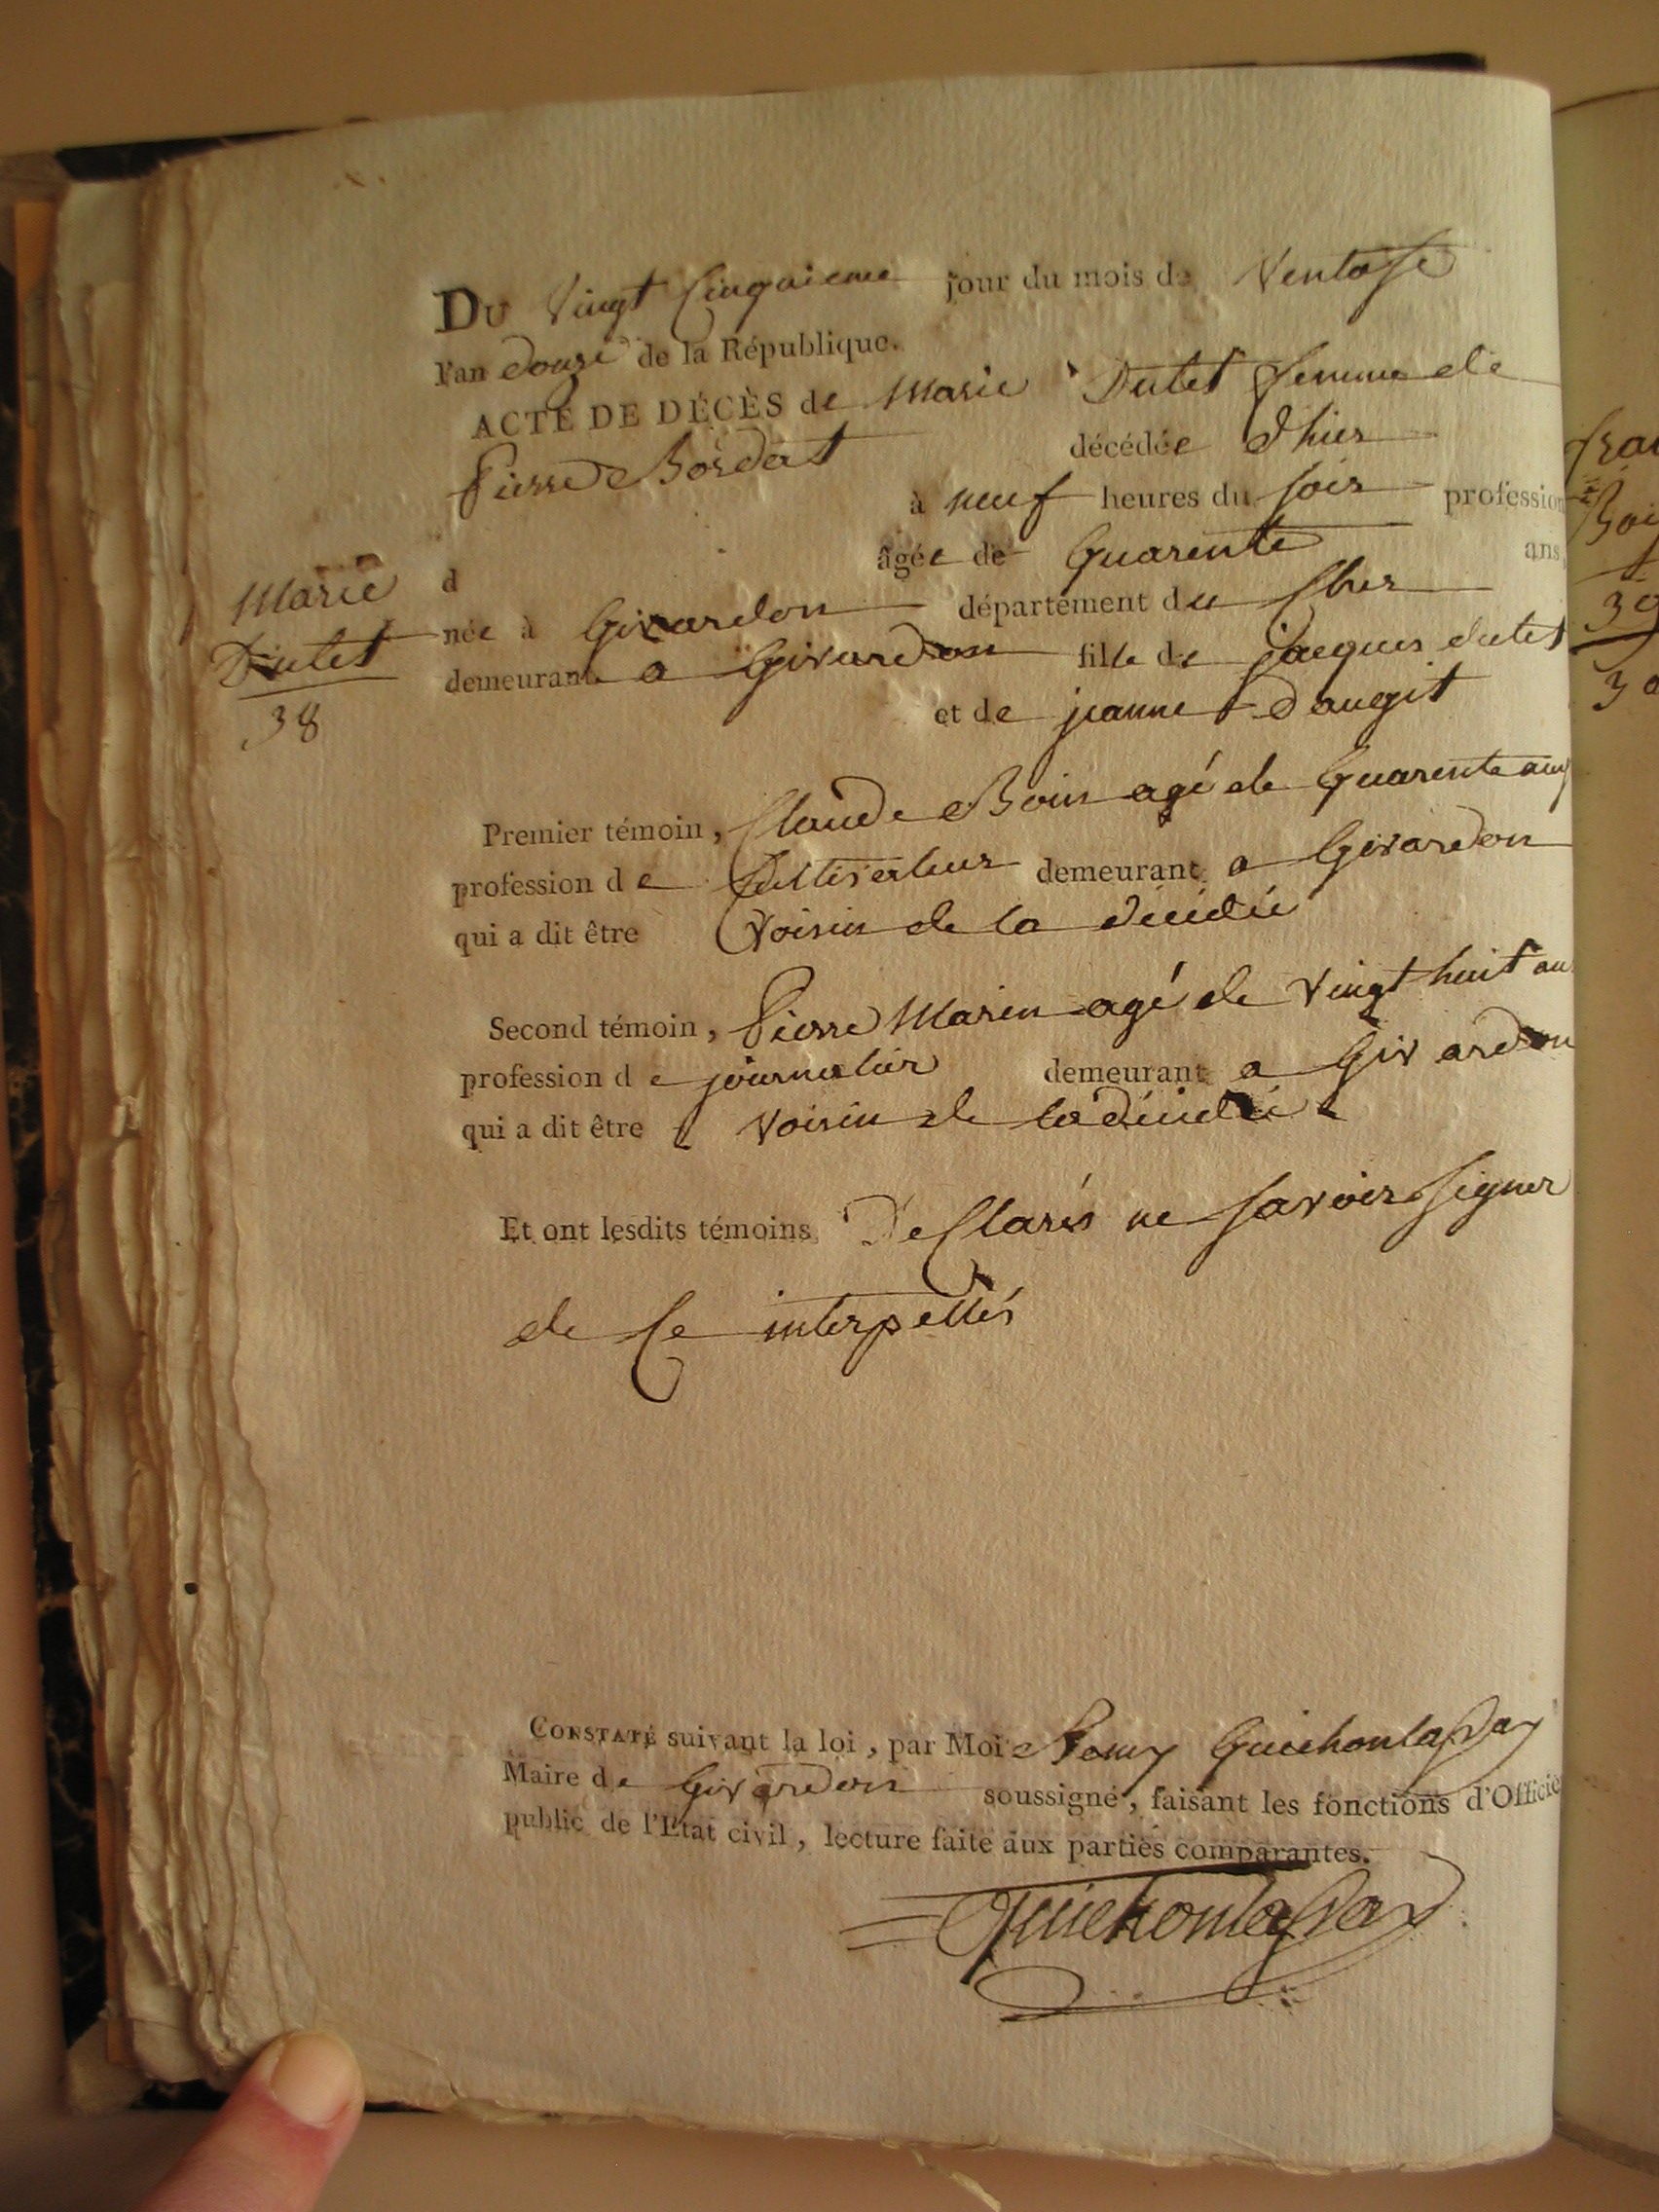 DU vingt Cinquieme jour du mois de Ventose
l'an douze de la République.
ACTE DE DÉCÈS de Marie Dutet femme de
Pierre Bordat décédée d'hier
à neuf heures du soir profession
d âgée de Quarente ans,
née à Givardon département du Cher
demeurant a Givardon fille de jacques dutet
et de jeanne daugit
Marie
Dutet
38
Premier témoin, Claude Boin agé de Quarente ans
profession de Cultivateur demeurant a Givardon
qui a dit être Voisin de la décédée
Second témoin, Pierre Marin agé de Vingt huit an
profession de journalier demeurant a Givardon
qui a dit être Voisin de la décédée
Et ont lesdits témoins Declarés ne savoir signer
de Ce interpellés
CONSTATÉ suivant la loi, par Moi Remy Guichonlasvay
Maire de Givardon soussigné, faisant les fonctions d'Officie
public de l'Etat civil, lecture faite aux parties comparantes.
39